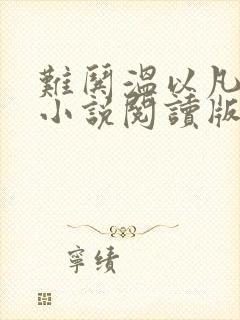 難鬨溫以凡
小說閱讀版
寧績